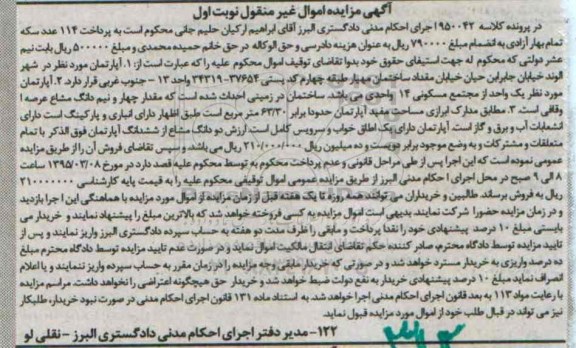 آگهی مزایده اموال غیر منقول نوبت اول
در پرونده کلاسه ۹۵۰۰۴۲ اجرای احکام مدنی دادگستری البرز آقای ابراهیم ارکیان حلیم جانی محکوم است به پرداخت ۱۱۴ عدد سکه
تمام بهار آزادی به انضمام مبلغ ۷۹۰۰۰۰ ریال به عنوان هزینه دادرسی و حق الوکاله در حق خانم حمیده محمدی و مبلغ ۵۰۰۰۰۰ ریال بابت نیم
عشر دولتی که محکوم له جهت استیفای حقوق خود بدوا تقاضای توقیف اموال محکوم علیه را که عبارت است از: ۱. آپارتمان مورد نظر در شهر
الوند خیابان جابرابن حیان خیابان مقداد ساختمان مهیار طبقه چهارم کد پستی ۳۷۶۵۴-۳۴۳۱۹ واحد ۱۳ - جنوب غربی قرار دارد. ۲. آپارتمان
مورد نظر یک واحد از مجتمع مسکونی ۱۴ واحدی می باشد. ساختمان در زمینی احداث شده است که مقدار چهار و نیم دانگ مشاع عرصه ا
وقافی است. ۳. مطابق مدارک ابرازی مساحت مفید آپارتمان حدودا برابر ۶۳/۳۰ متر مربع است طبق اظهار دارای انباری و پارکینگ است دارای
انشعابات آب و برق و گاز است. آپارتمان دارای یک اطاق خواب و سرویس کامل است. ارزش دو دانگ مشاع از ششدانگ آپارتمان فوق الذکر با تمام
متعلقات و مشترکات و به وضع موجود برابر دویست و ده میلیون ریال ۲۱۰/۰۰۰/۰۰۰ ریال می باشد و سپس تقاضای فروش آن را از طریق مزایده
عمومی نموده است که این اجرا پس از طی مراحل قانونی و عدم پرداخت محکوم به توسط محکوم علیه قصد دارد در مورخ ۱۳۹۵/۰۳/۰۸ ساعت
۸ الی ۹ صبح در محل اجرای احکام مدنی البرز از طریق مزایده عمومی اموال توقیفی محکوم علیه را به قیمت پایه کارشناسی ۲۱۰۰۰۰۰۰۰
ریال به فروش برساند. طالبین و خریداران می توانند همه روزه تا یک هفته قبل از زمان مزایده از اموال مورد مزایده با هماهنگی این اجرا بازدید
و در زمان مزایده حضورا شرکت نمایند بدیهی است اموال مزایده به کسی فروخته خواهد شد که بالاترین مبلغ را پیشنهاد نمایند و خریدار می
بایستی مبلغ ۱۰ درصد پیشنهادی خود را نقدا پرداخت و مابقی را ظرف مدت دو هفته به حساب سپرده دادگستری البرز واریز نمایند و پس از
تایید مزایده توسط دادگاه محترم، صادر کننده حکم تقاضای انتقال مالکیت اموال نماید و در صورت عدم تایید مزایده توسط دادگاه محترم مبلغ
ده درصد واریزی به خریدار مسترد خواهد شد و در صورتی که خریدار مابقی وجه مزایده را در زمان مقرر به حساب سپرده واریز ننمایند و یا اعلام
انصراف نماید مبلغ ۱۰ درصد پیشنهادی خریدار به نفع دولت ضبط خواهد شد و خریدار حق هیچگونه اعتراضی را نخواهد داشت. مراسم مزایده
با رعایت مواد ۱۱۳ به بعد قانون اجرای احکام مدنی اجرا خواهد شد. به استناد ماده ۱۳۱ قانون اجرای احکام مدنی در صورت نبود خریدار، طلبکار
نیز می تواند در قبال طلب خود از اموال مورد مزایده قبول نماید.
۱۲۲- مدیر دفتر اجرای احکام مدنی دادگستری البرز - نقلی لو